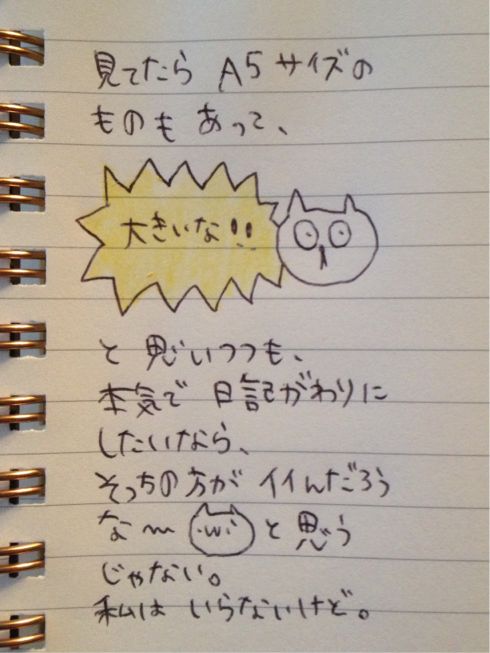 見てたら A5サイズの
ものもあって、
大きいな!!
と思いつつも、
本気で日記がわりに
したいなら、
そっちの方がイイんだろう
な〜 ・w・ と思う
じゃない。
私はいらないけど。